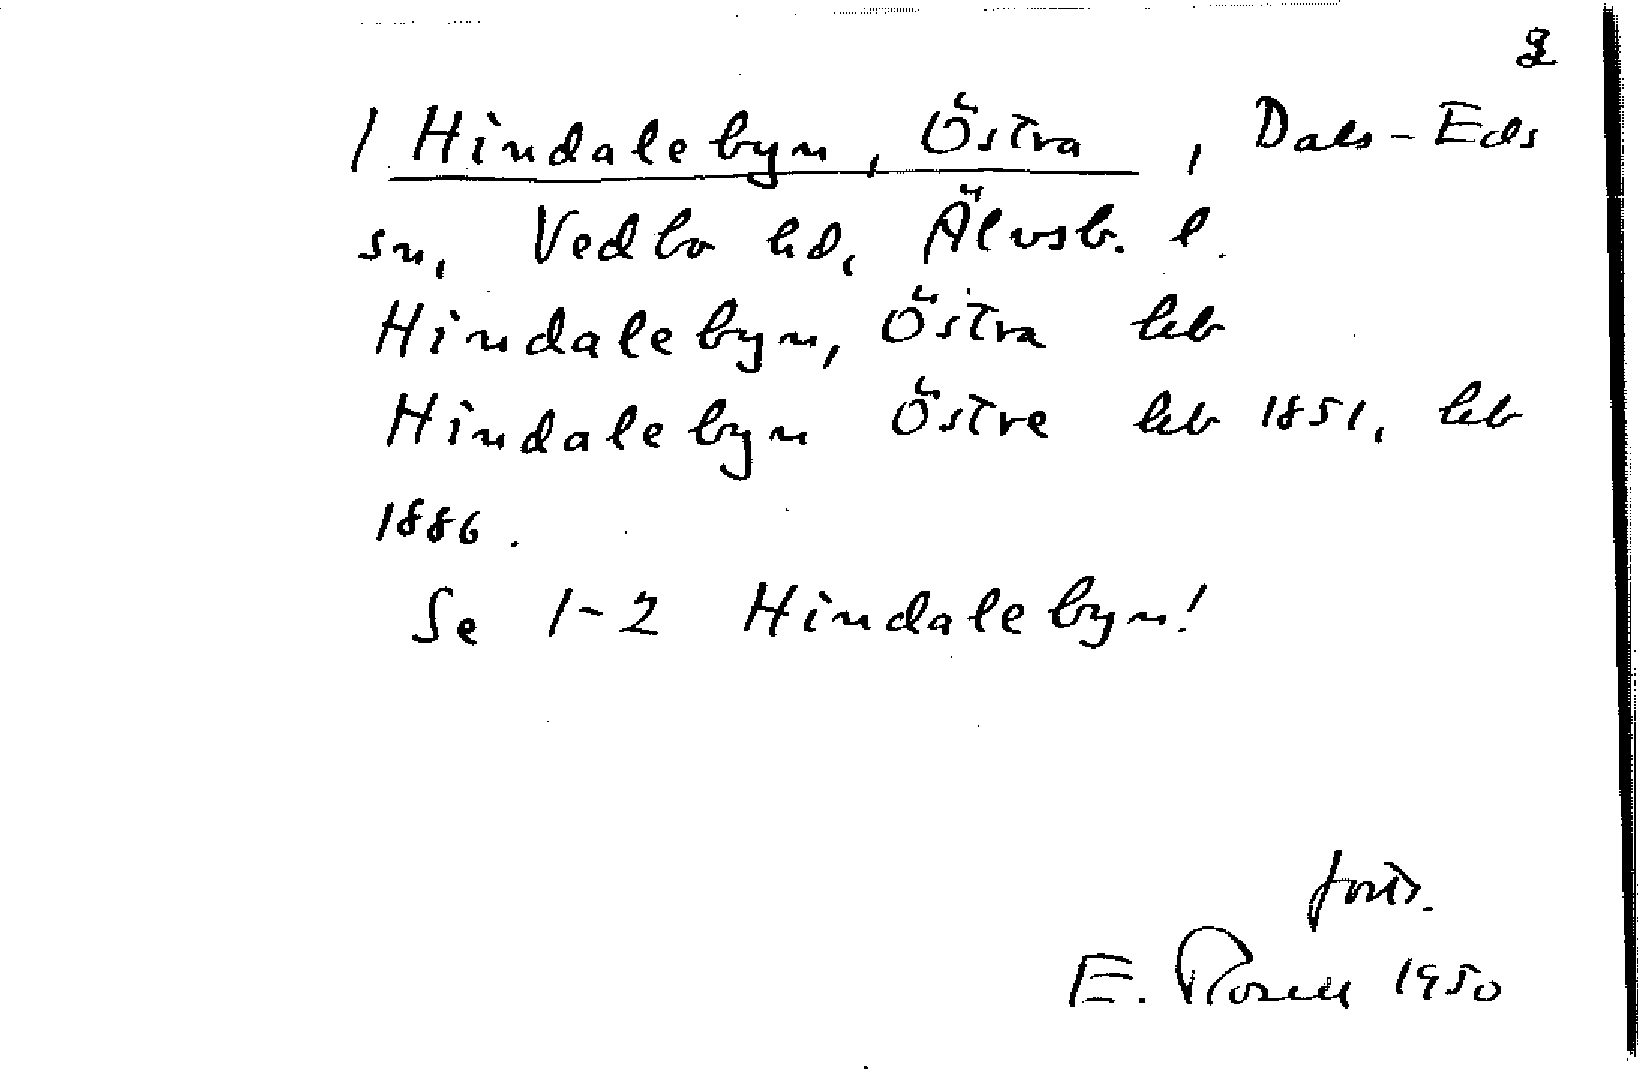 1 Hindalebyn, Östra, Dals-Eds
sn, Vedbo hd, Älvsb. l.
Hindalebyn, Östra
Hindalebyn Östre 1851,
1886.
Se 1-2 Hindalebyn!
forts.
E. Rosell 1950